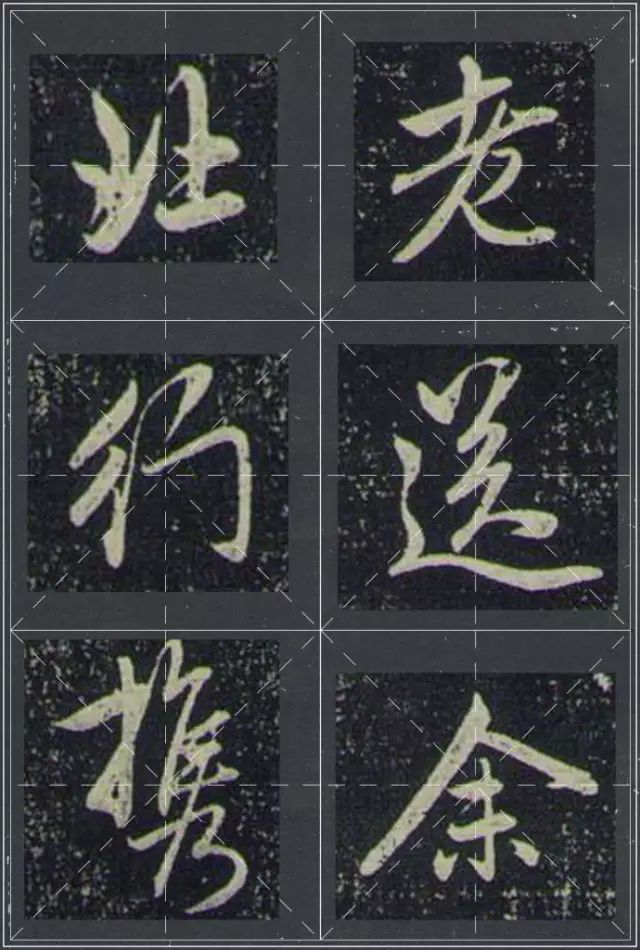 老送余
壯行携